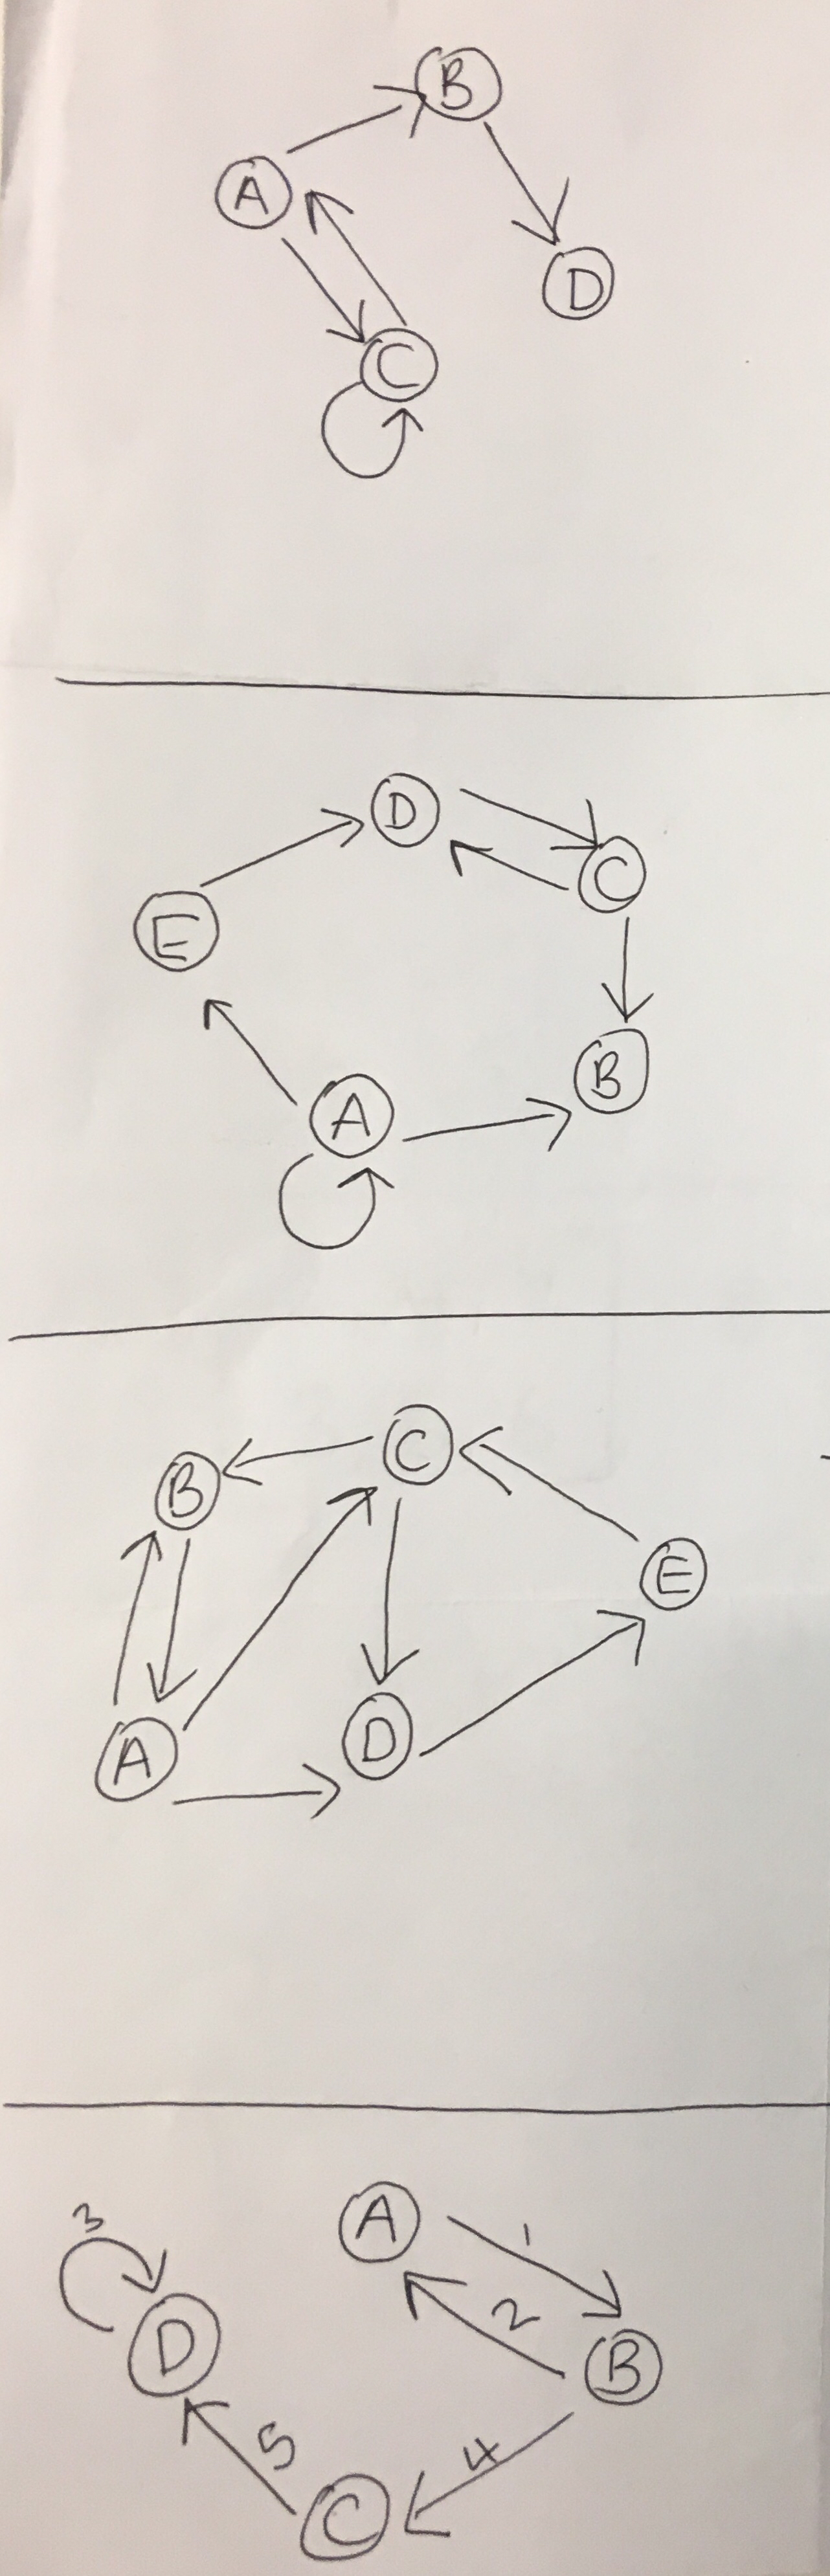 B
A
D
C
D
C
E
B
A
C
B
E
D
A
3
A
1
2
D
B
5
4
C